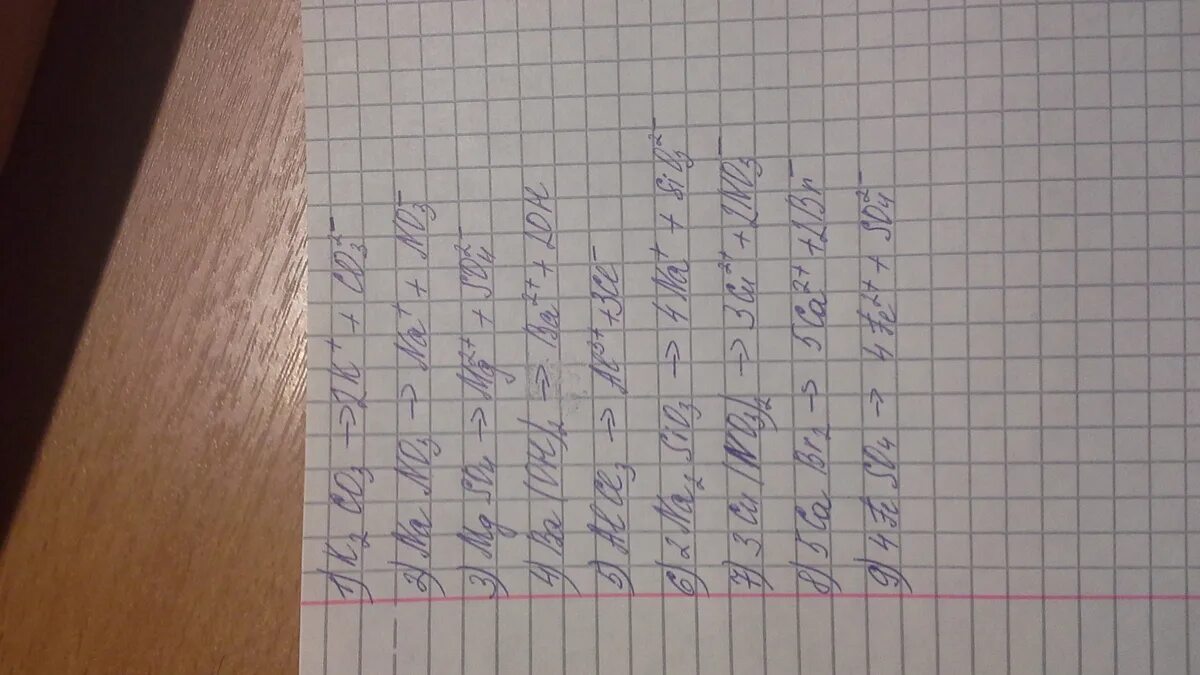 1) K₂CO₃ → 2K⁺ + CO₃²⁻
2) NaNO₃ → Na⁺ + NO₃⁻
3) MgSO₄ → Mg²⁺ + SO₄²⁻
4) Ba(OH)₂ → Ba²⁺ + 2OH
5) AlCl₃ → Al³⁺ + 3Cl⁻
6) 2Na₂SiO₃ → 4Na⁺ + SiO₃²⁻
7) 3Cu(NO₃)₂ → 3Cu²⁺ + 2NO₃⁻
8) 5CaBr₂ → 5Ca²⁺ + 2Br⁻
9) 4FeSO₄ → 4Fe²⁺ + SO₄²⁻